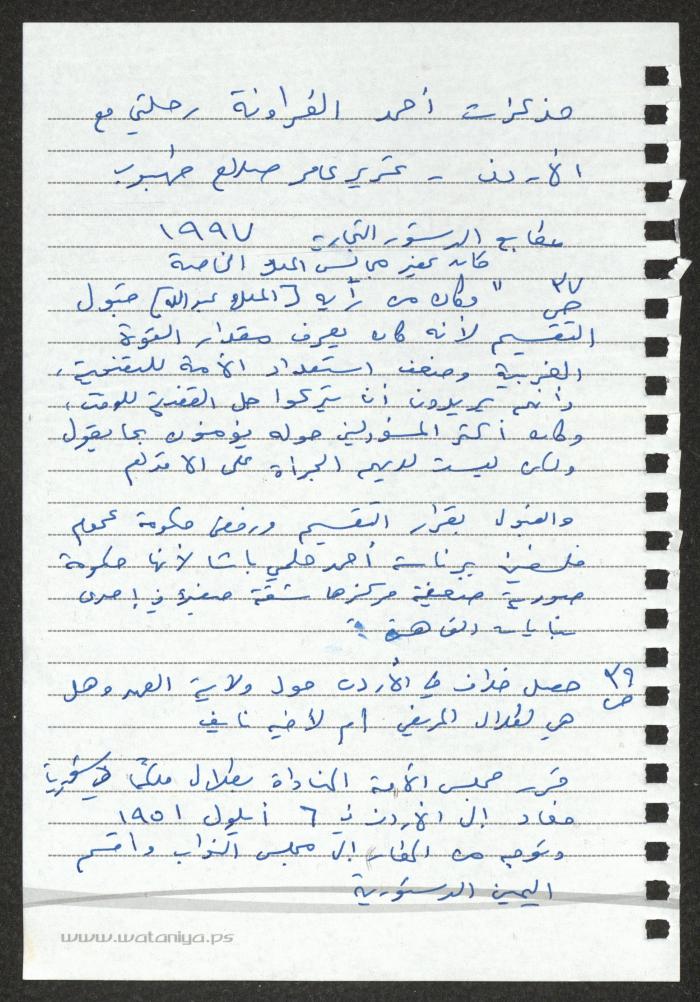 مذكرات أحمد الفراونة رحلتي مع
الأردن - تحرير عامر صلاح
مطابع الدستور التجارية ١٩٩٧
كان يحضر مجالس الملك الخاصة
ص ٣٧ " وكان من رأيه [الملك عبدالله] قبول
التقسيم لأنه كان يعرف مقدار القوة
الغربية وضعف استعداد الأمة للتضحية،
وأنهم يريدون أن يتركوا حل القضية للوقت،
وكان أكثر المسؤولين حوله يؤمنون بما يقول
ولكن ليست لديهم الجرأة على الاقدام
والقبول بقرار التقسيم ورفض حكومة عموم
فلسطين برئاسة أحمد حلمي باشا لأنها حكومة
صورية ضعيفة مركزها شقة صغيرة في إحدى
بنايات القاهرة
ص ٣٩ حصل خلاف في الأردن حول ولاية العهد وهل
هي لطلال المريض أم لأخيه نايف
قرر مجلس الأمة المناداة بطلال ملكًا
فعاد إلى الأردن في ٦ أيلول ١٩٥١
وتوجه من المطار إلى مجلس النواب واقسم
اليمين الدستورية
www.wataniya.ps